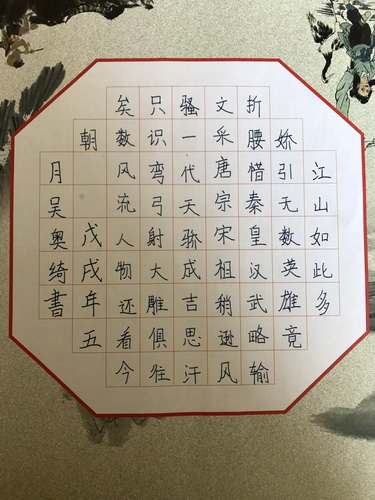 江山如此多
娇引无数英雄竞
折腰惜秦皇汉武略输
文采唐宗宋祖稍逊风
骚一代天骄成吉思汗
只识弯弓射大雕俱往
矣数风流人物还看今
朝 戊戌年五
月吴奥绮書